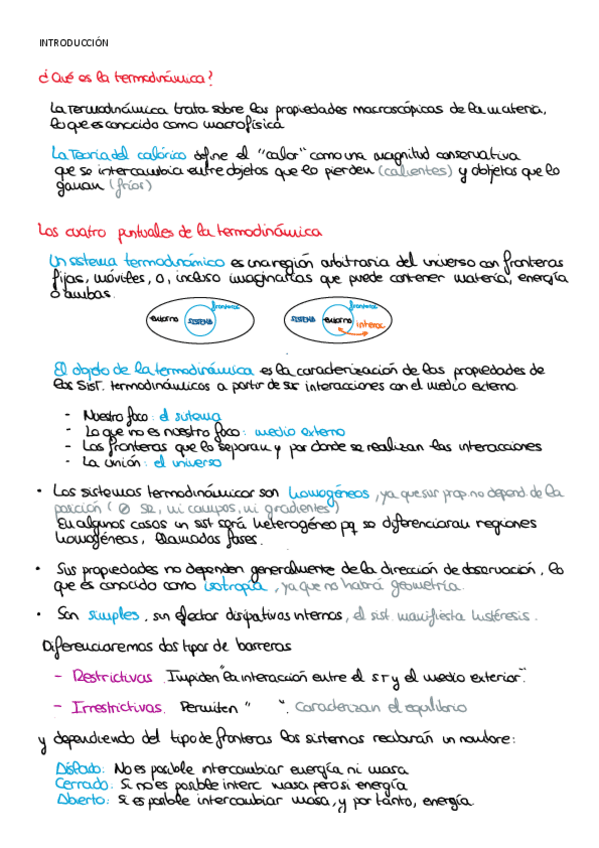 INTRODUCCIÓN
¿Qué es la termodinámica?
La Termodinámica trata sobre las propiedades macroscópicas de la materia,
lo que es conocido como macrofísica
La Teoría del calórico define el "calor" como una magnitud conservativa
que se intercambia entre objetos que lo pierden (calientes) y objetos que lo
ganan (fríos)
Los cuatro puntuales de la termodinámica
Un sistema termodinámico es una región arbitraria del universo con fronteras
fijas, móviles, o, incluso imaginarias que puede contener materia, energía
o ambas.
entorno SISTEMA fronteras
SISTEMA entorno fronteras interac
El objeto de la termodinámica es la caracterización de las propiedades de
los sist. termodinámicos a partir de sus interacciones con el medio externo.
- Nuestro foco: el sistema
- Lo que no es nuestro foco: medio externo
- Las fronteras que lo separan y por donde se realizan las interacciones
- La unión: el universo
• Los sistemas termodinámicos son homogéneos, ya que sus prop. no depend. de la
posición (∅ SR, ni campos, ni gradientes)
En algunos casos un sist será heterogéneo pq se diferenciarán regiones
homogéneas, llamadas fases.
• Sus propiedades no dependen generalmente de la dirección de observación, lo
que es conocido como isotropía, ya que no habrá geometría.
• Son simples, sin efectos disipativos internos, el sist. manifiesta histéresis.
Diferenciaremos dos tipos de barreras
- Restrictivas. Impiden "la interacción entre el ST y el medio exterior".
- Irrestrictivas. Permiten " ". Caracterizan el equilibrio
y dependiendo del tipo de fronteras los sistemas recibirán un nombre:
Aislado: No es posible intercambiar energía ni masa
Cerrado: Si no es posible interc masa pero si energía
Abierto: Si es posible intercambiar masa, y por tanto, energía.